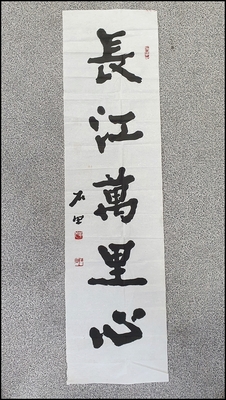 長江萬里心